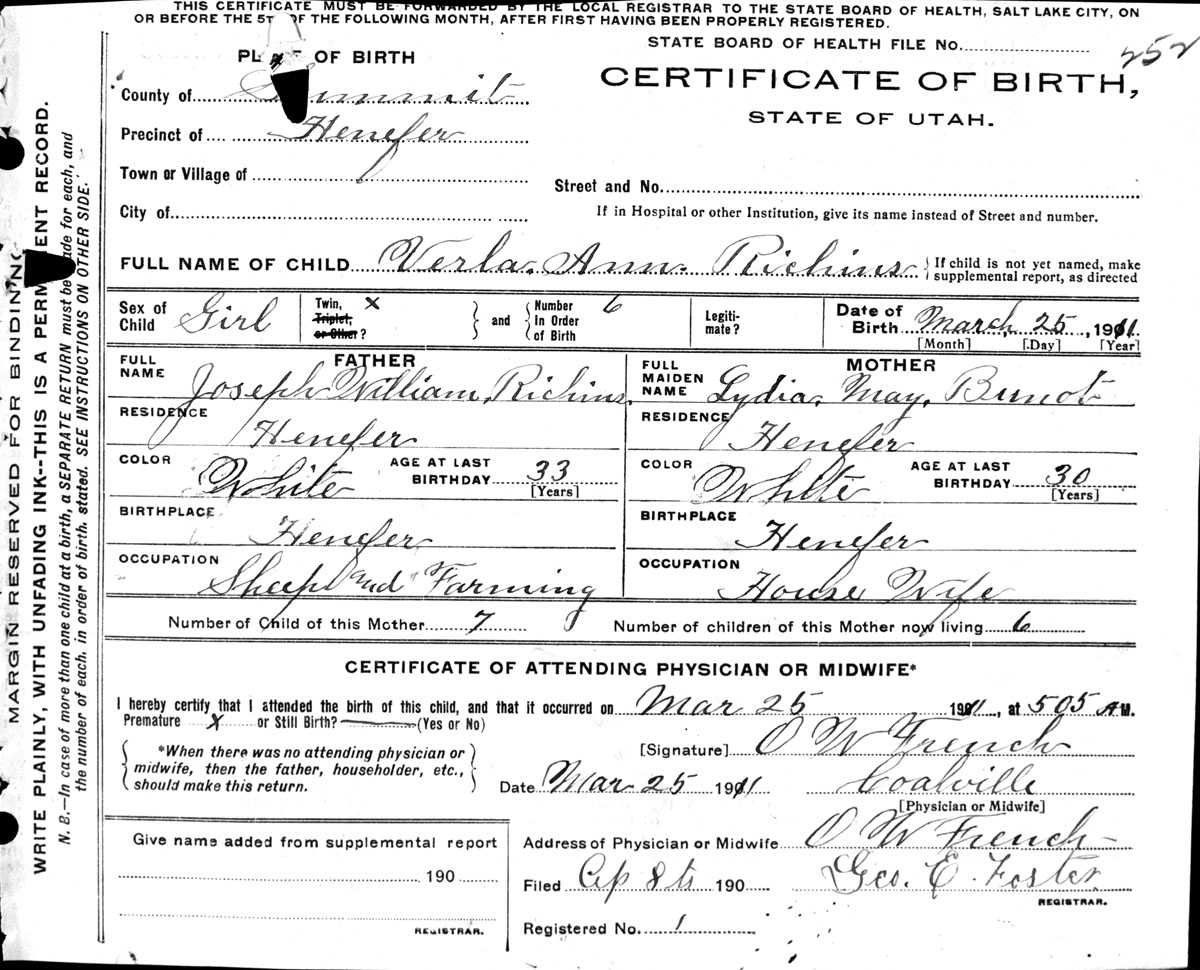 THIS CERTIFICATE MUST BE FORWARDED BY THE LOCAL REGISTRAR TO THE STATE BOARD OF HEALTH, SALT LAKE CITY, ON
OR BEFORE THE 5T OF THE FOLLOWING MONTH, AFTER FIRST HAVING BEEN PROPERLY REGISTERED.
STATE BOARD OF HEALTH FILE No. 252
PL OF BIRTH
CERTIFICATE OF BIRTH,
STATE OF UTAH.
County of Summit
Precinct of Henefer
Town or Village of
Street and No.
City of
If in Hospital or other Institution, give its name instead of Street and number.
FULL NAME OF CHILD Verla. Ann. Richins { If child is not yet named, make supplemental report, as directed
Sex of Child Girl
Twin, X Triplet, or Other?
and
Number In Order of Birth 6
Legiti-mate?
Date of Birth March, 25, 1911.
[Month] [Day] [Year]
FATHER
FULL NAME Joseph William, Richins.
RESIDENCE Henefer
COLOR White AGE AT LAST BIRTHDAY 33 [Years]
BIRTHPLACE Henefer
OCCUPATION Sheep and Farming
MOTHER
FULL MAIDEN NAME Lydia, May, Brunot
RESIDENCE Henefer
COLOR White AGE AT LAST BIRTHDAY 30 [Years]
BIRTHPLACE Henefer
OCCUPATION House Wife
Number of Child of this Mother 7 Number of children of this Mother now living 6
CERTIFICATE OF ATTENDING PHYSICIAN OR MIDWIFE*
I hereby certify that I attended the birth of this child, and that it occurred on Mar 25 1911, at 505 A.M.
Premature X or Still Birth? (Yes or No)
*When there was no attending physician or
midwife, then the father, householder, etc.,
should make this return.
[Signature] O W French
Date Mar 25 1911 Coalville
[Physician or Midwife]
Address of Physician or Midwife O W French
Filed Ap 8th 190 Geo. E. Foster
REGISTRAR.
Registered No. 1
Give name added from supplemental report
190
REGISTRAR.
MARGIN RESERVED FOR BINDING
WRITE PLAINLY, WITH UNFADING INK--THIS IS A PERMANENT RECORD.
N. B.--In case of more than one child at a birth, a SEPARATE RETURN must be made for each, and
the number of each, in order of birth, stated. SEE INSTRUCTIONS ON OTHER SIDE.